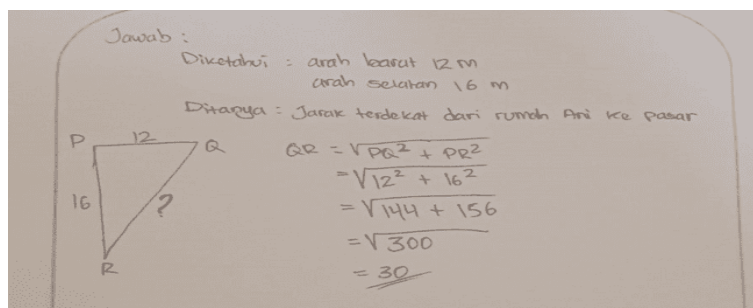 Jawab :
Diketahui : arah barat 12 m
arah selatan 16 m
Ditanya : Jarak terdekat dari rumah Ani ke pasar
P 12 Q
16 ?
R
QR = √PQ² + PR²
= √12² + 16²
= √144 + 156
= √300
= 30